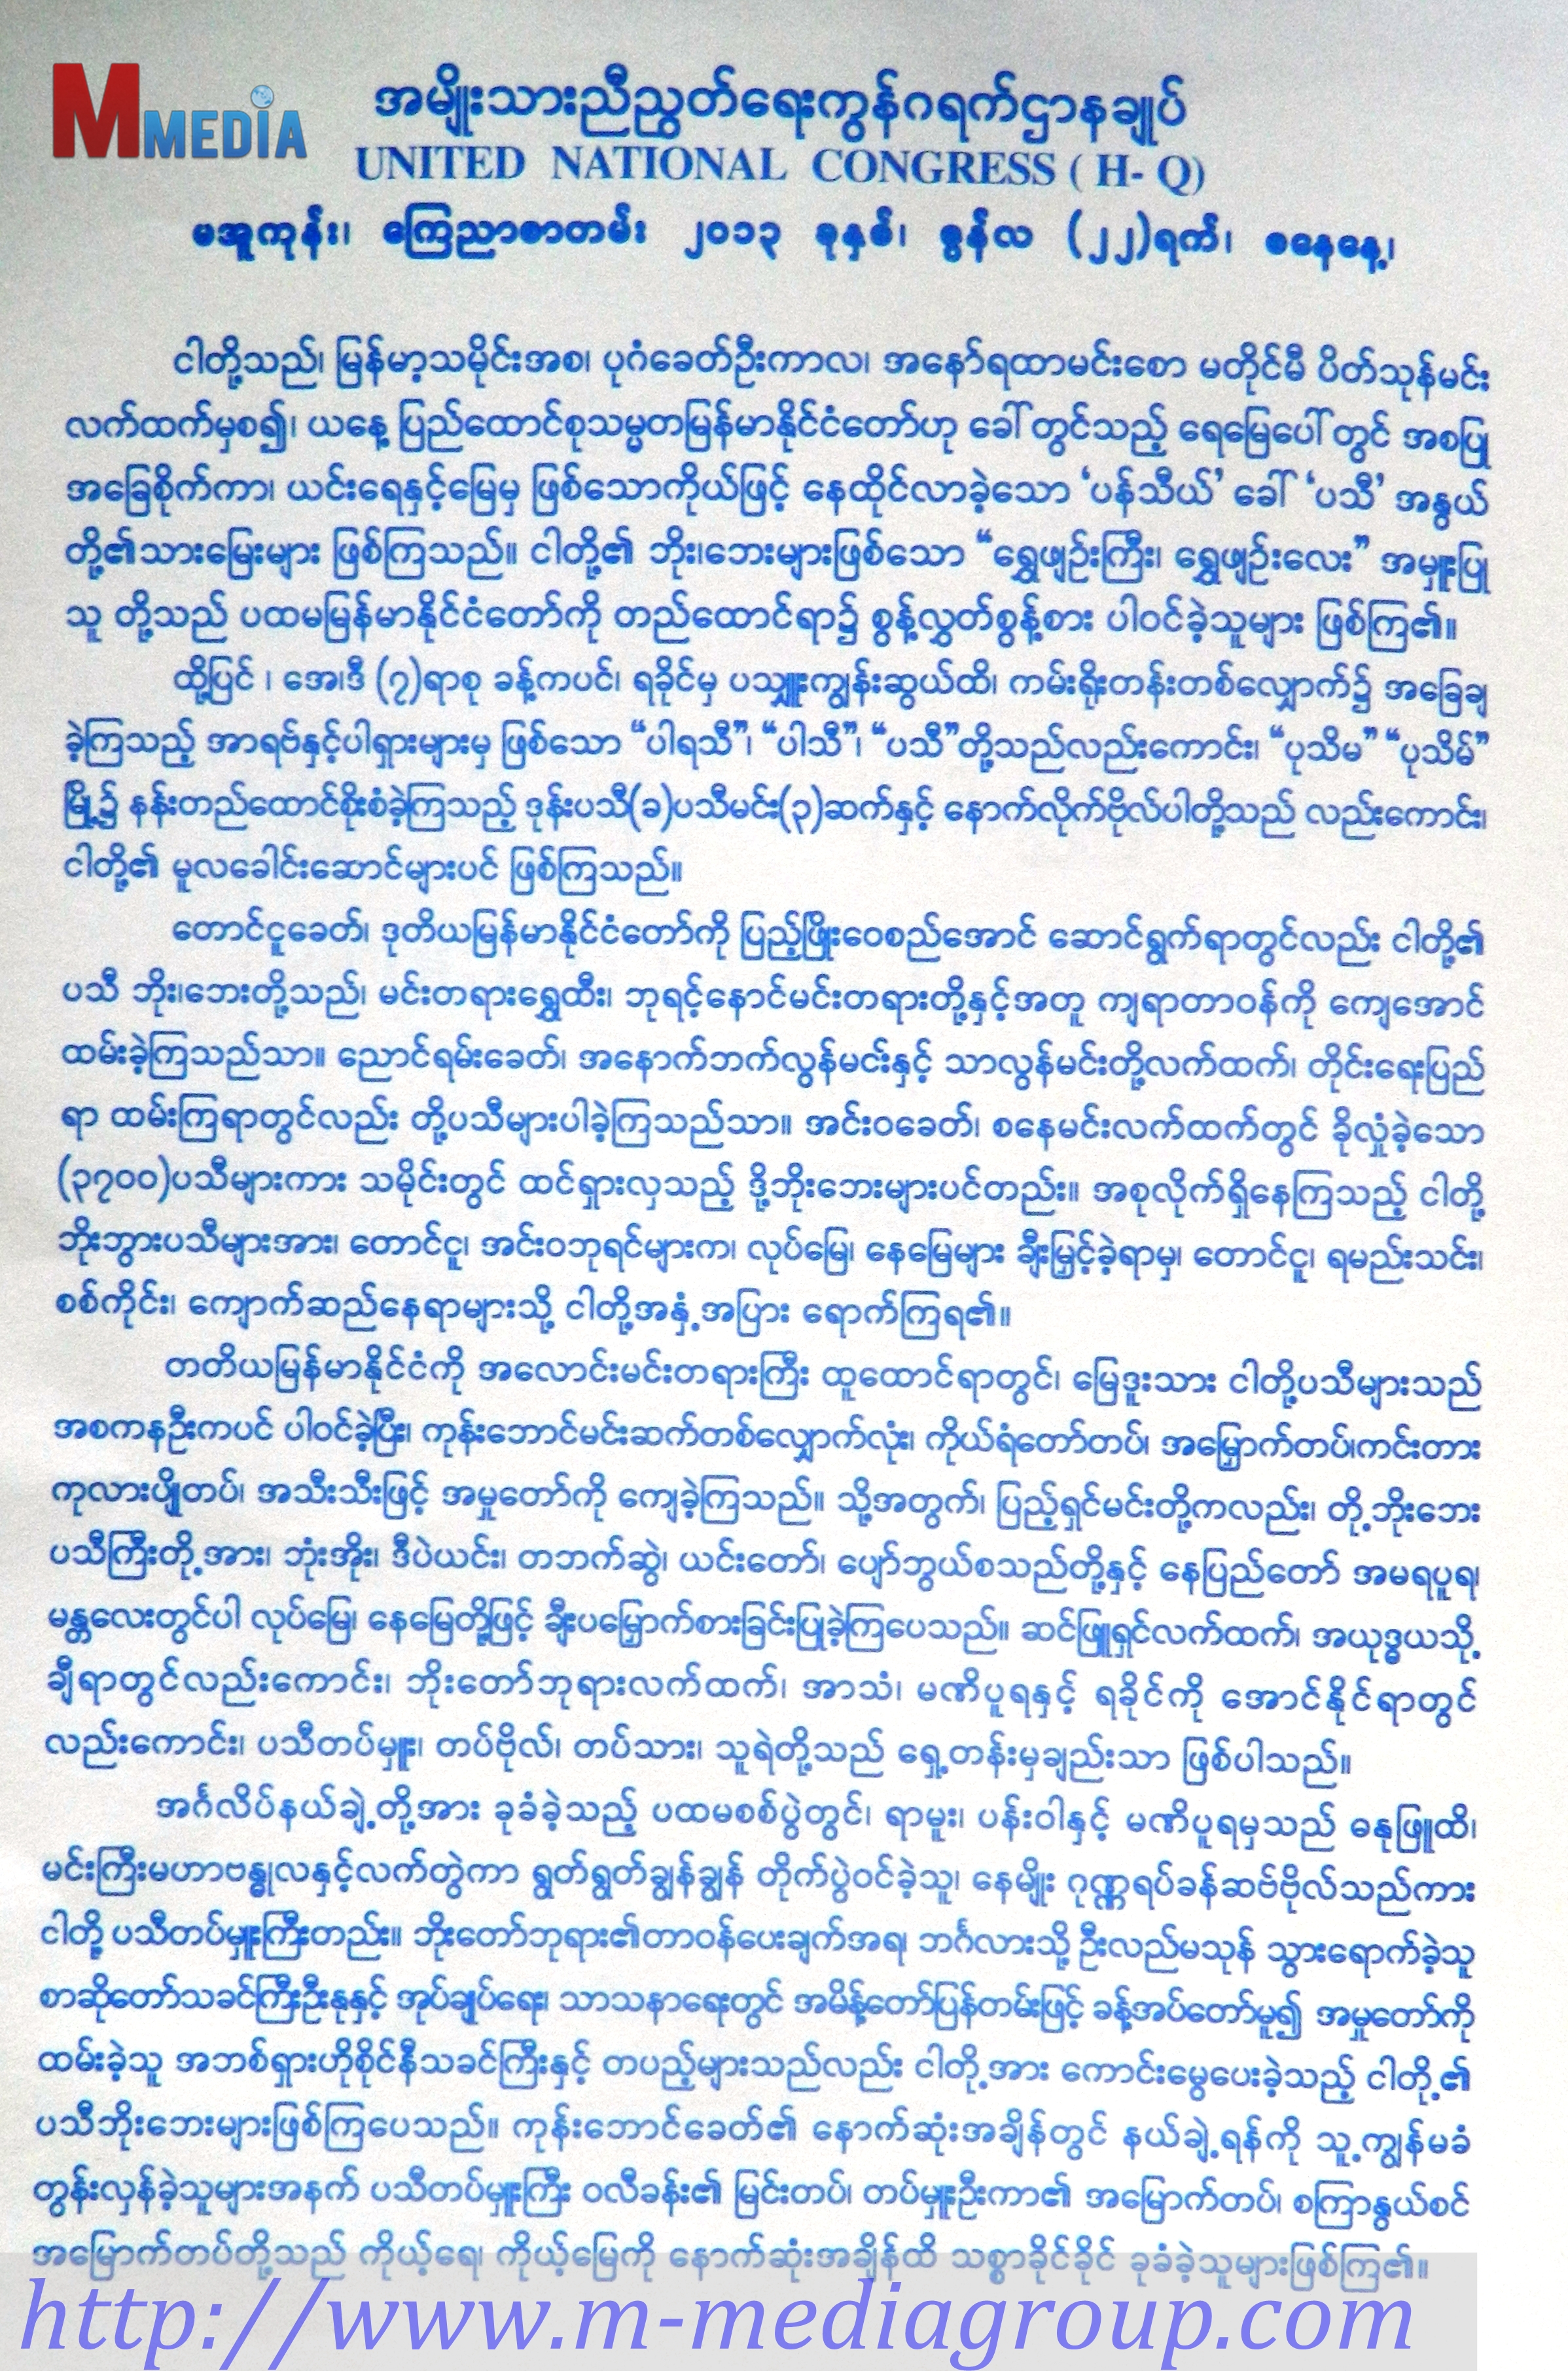 MMEDIA
အမျိုးသားညီညွတ်ရေးကွန်ဂရက်ဌာနချုပ်
UNITED NATIONAL CONGRESS ( H- Q)
မအူကုန်း၊ ကြေညာစာတမ်း ၂၀၁၃ ခုနှစ်၊ ဇွန်လ (၂၂)ရက်၊ စနေနေ့၊
ငါတို့သည်၊ မြန်မာ့သမိုင်းအစ၊ ပုဂံခေတ်ဦးကာလ၊ အနော်ရထာမင်းစော မတိုင်မီ ပိတ်သုန်မင်း
လက်ထက်မှစ၍၊ ယနေ့ ပြည်ထောင်စုသမ္မတမြန်မာနိုင်ငံတော်ဟု ခေါ်တွင်သည့် ရေမြေပေါ်တွင် အစပြု
အခြေစိုက်ကာ၊ ယင်းရေနှင့်မြေမှ ဖြစ်သောကိုယ်ဖြင့် နေထိုင်လာခဲ့သော ‘ပန်သီယ်’ ခေါ် ‘ပသီ’ အနွယ်
တို့၏သားမြေးများ ဖြစ်ကြသည်။ ငါတို့၏ ဘိုး၊ဘေးများဖြစ်သော “ရွှေဖျဉ်းကြီး၊ ရွှေဖျဉ်းလေး” အမှူးပြု
သူ တို့သည် ပထမမြန်မာနိုင်ငံတော်ကို တည်ထောင်ရာ၌ စွန့်လွှတ်စွန့်စား ပါဝင်ခဲ့သူများ ဖြစ်ကြ၏။
ထို့ပြင် ၊ အေ၊ဒီ (၇)ရာစု ခန့်ကပင်၊ ရခိုင်မှ ပသျှူးကျွန်းဆွယ်ထိ၊ ကမ်းရိုးတန်းတစ်လျှောက်၌ အခြေချ
ခဲ့ကြသည့် အာရဗ်နှင့်ပါရှားများမှ ဖြစ်သော “ပါရသီ”၊ “ပါသီ”၊ “ပသီ”တို့သည်လည်းကောင်း၊ “ပုသိမ” “ပုသိမ်”
မြို့၌ နန်းတည်ထောင်စိုးစံခဲ့ကြသည့် ဒုန်းပသီ(ခ)ပသီမင်း(၃)ဆက်နှင့် နောက်လိုက်ဗိုလ်ပါတို့သည် လည်းကောင်း၊
ငါတို့၏ မူလခေါင်းဆောင်များပင် ဖြစ်ကြသည်။
တောင်ငူခေတ်၊ ဒုတိယမြန်မာနိုင်ငံတော်ကို ပြည့်ဖြိုးဝေစည်အောင် ဆောင်ရွက်ရာတွင်လည်း ငါတို့၏
ပသီ ဘိုး၊ဘေးတို့သည်၊ မင်းတရားရွှေထီး၊ ဘုရင့်နောင်မင်းတရားတို့နှင့်အတူ ကျရာတာဝန်ကို ကျေအောင်
ထမ်းခဲ့ကြသည်သာ။ ညောင်ရမ်းခေတ်၊ အနောက်ဘက်လွန်မင်းနှင့် သာလွန်မင်းတို့လက်ထက်၊ တိုင်းရေးပြည်
ရာ ထမ်းကြရာတွင်လည်း တို့ပသီများပါခဲ့ကြသည်သာ။ အင်းဝခေတ်၊ စနေမင်းလက်ထက်တွင် ခိုလှုံခဲ့သော
(၃၇၀၀)ပသီများကား သမိုင်းတွင် ထင်ရှားလှသည့် ဒို့ဘိုးဘေးများပင်တည်း။ အစုလိုက်ရှိနေကြသည့် ငါတို့
ဘိုးဘွားပသီများအား၊ တောင်ငူ၊ အင်းဝဘုရင်များက၊ လုပ်မြေ၊ နေမြေများ ချီးမြှင့်ခဲ့ရာမှ၊ တောင်ငူ၊ ရမည်းသင်း၊
စစ်ကိုင်း၊ ကျောက်ဆည်နေရာများသို့ ငါတို့အနှံ့အပြား ရောက်ကြရ၏။
တတိယမြန်မာနိုင်ငံကို အလောင်းမင်းတရားကြီး ထူထောင်ရာတွင်၊ မြေဒူးသား ငါတို့ပသီများသည်
အစကနဦးကပင် ပါဝင်ခဲ့ပြီး၊ ကုန်းဘောင်မင်းဆက်တစ်လျှောက်လုံး၊ ကိုယ်ရံတော်တပ်၊ အမြှောက်တပ်၊ကင်းတား
ကုလားပျိုတပ်၊ အသီးသီးဖြင့် အမှုတော်ကို ကျေခဲ့ကြသည်။ သို့အတွက်၊ ပြည့်ရှင်မင်းတို့ကလည်း၊ တို့ဘိုးဘေး
ပသီကြီးတို့အား၊ ဘုံးအိုး၊ ဒီပဲယင်း၊ တဘက်ဆွဲ၊ ယင်းတော်၊ ပျော်ဘွယ်စသည်တို့နှင့် နေပြည်တော် အမရပူရ၊
မန္တလေးတွင်ပါ လုပ်မြေ၊ နေမြေတို့ဖြင့် ချီးပမြှောက်စားခြင်းပြုခဲ့ကြပေသည်။ ဆင်ဖြူရှင်လက်ထက်၊ အယုဒ္ဓယသို့
ချီရာတွင်လည်းကောင်း၊ ဘိုးတော်ဘုရားလက်ထက်၊ အာသံ၊ မဏိပူရနှင့် ရခိုင်ကို အောင်နိုင်ရာတွင်
လည်းကောင်း၊ ပသီတပ်မှူး၊ တပ်ဗိုလ်၊ တပ်သား၊ သူရဲတို့သည် ရှေ့တန်းမှချည်းသာ ဖြစ်ပါသည်။
အင်္ဂလိပ်နယ်ချဲ့တို့အား ခုခံခဲ့သည့် ပထမစစ်ပွဲတွင်၊ ရာမူး၊ ပန်းဝါနှင့် မဏိပူရမှသည် ဓနုဖြူထိ၊
မင်းကြီးမဟာဗန္ဓုလနှင့်လက်တွဲကာ ရွတ်ရွတ်ချွန်ချွန် တိုက်ပွဲဝင်ခဲ့သူ၊ နေမျိုး ဂုဏ္ဏရပ်ခန်ဆဗ်ဗိုလ်သည်ကား
ငါတို့ ပသီတပ်မှူးကြီးတည်း။ ဘိုးတော်ဘုရား၏တာဝန်ပေးချက်အရ၊ ဘင်္ဂလားသို့ ဦးလည်မသုန် သွားရောက်ခဲ့သူ
စာဆိုတော်သခင်ကြီးဦးနုနှင့် အုပ်ချုပ်ရေး၊ သာသနာရေးတွင် အမိန့်တော်ပြန်တမ်းဖြင့် ခန့်အပ်တော်မူ၍ အမှုတော်ကို
ထမ်းခဲ့သူ အဘစ်ရှားဟိုစိုင်နီသခင်ကြီးနှင့် တပည့်များသည်လည်း ငါတို့အား ကောင်းမွေပေးခဲ့သည့် ငါတို့၏
ပသီဘိုးဘေးများဖြစ်ကြပေသည်။ ကုန်းဘောင်ခေတ်၏ နောက်ဆုံးအချိန်တွင် နယ်ချဲ့ရန်ကို သူ့ကျွန်မခံ
တွန်းလှန်ခဲ့သူများအနက် ပသီတပ်မှူးကြီး ဝလီခန်း၏ မြင်းတပ်၊ တပ်မှူးဦးကာ၏ အမြောက်တပ်၊ စကြာနွယ်စင်
အမြောက်တပ်တို့သည် ကိုယ့်ရေ၊ ကိုယ့်မြေကို နောက်ဆုံးအချိန်ထိ သစ္စာခိုင်ခိုင် ခုခံခဲ့သူများဖြစ်ကြ၏။
http://www.m-mediagroup.com